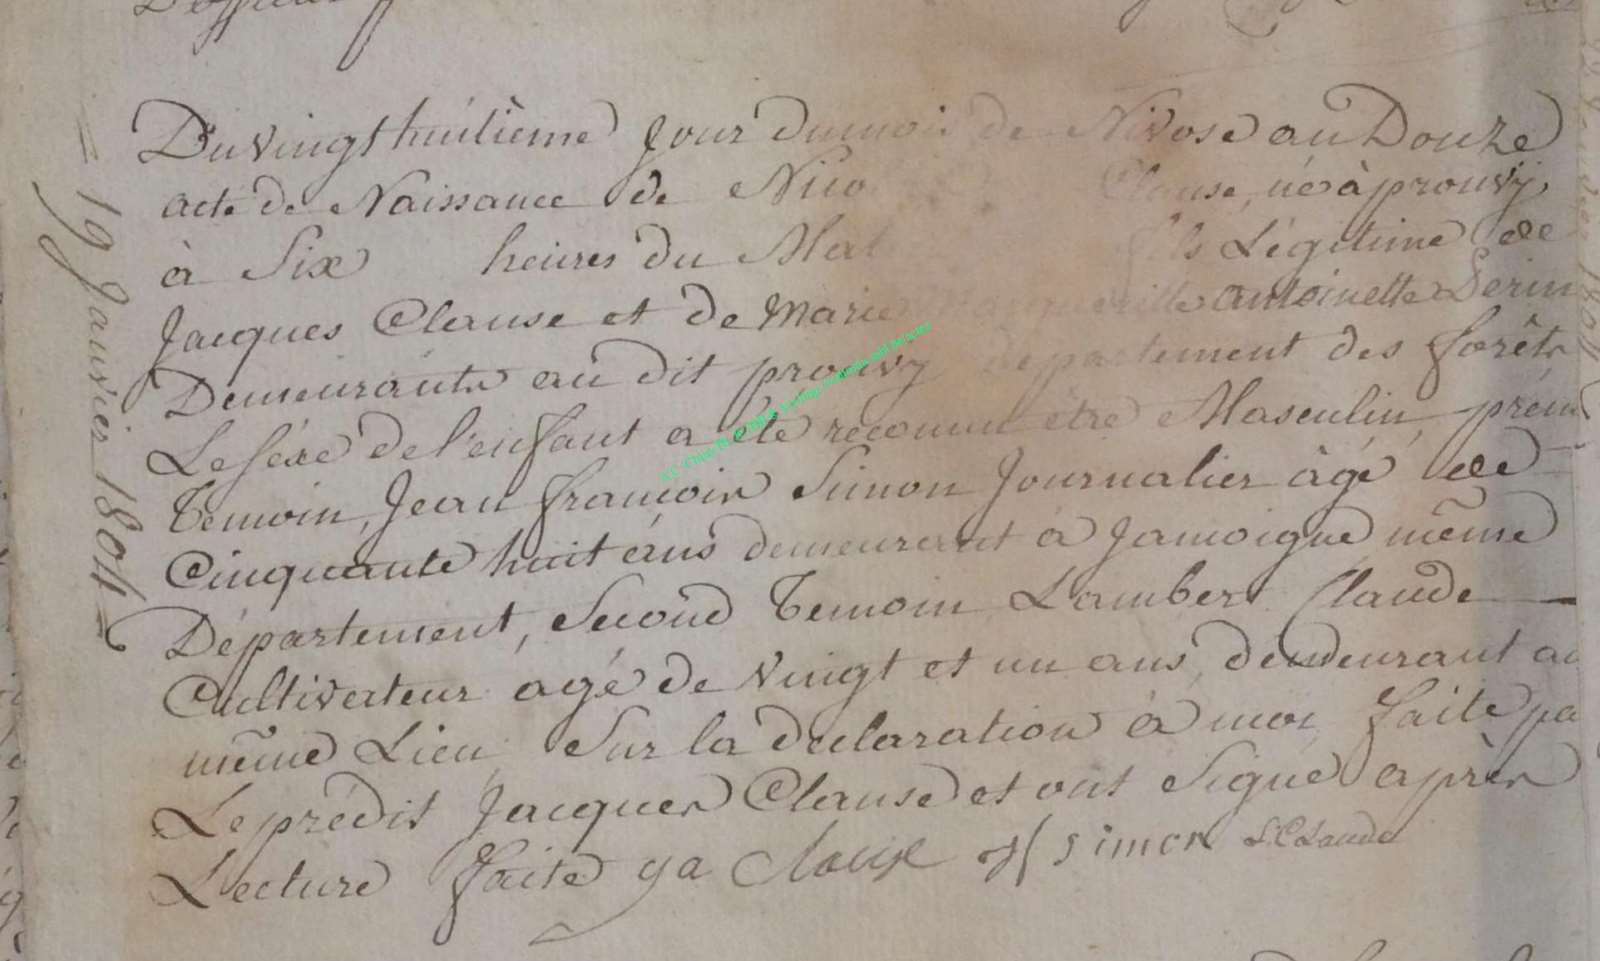 Du vingt huitième jour du mois de Nivose an Douze
acte de Naissance de Nico Clause, né à prouvy,
à Six heures du Mat fils Légitime de
Jacques Clause et de Marie Margueritte antoinette
Demeurants au dit prouvy département des forêts
Le séxe de l'enfant a été reconnu être Masculin, prém
Temoin, Jean françois Simon Journalier âgé de
Cinquante huit ans demeurant à Jamoigne même
Département, Second Temoin Lambert Claude
Cultivateur agé de vingt et un ans, demeurant au
même Lieu Sur la declaration à moi faite pa
Le prédit Jacques Clause et ont Signé après
Lecture faite
simon L C Laude
19 Janvier 1804